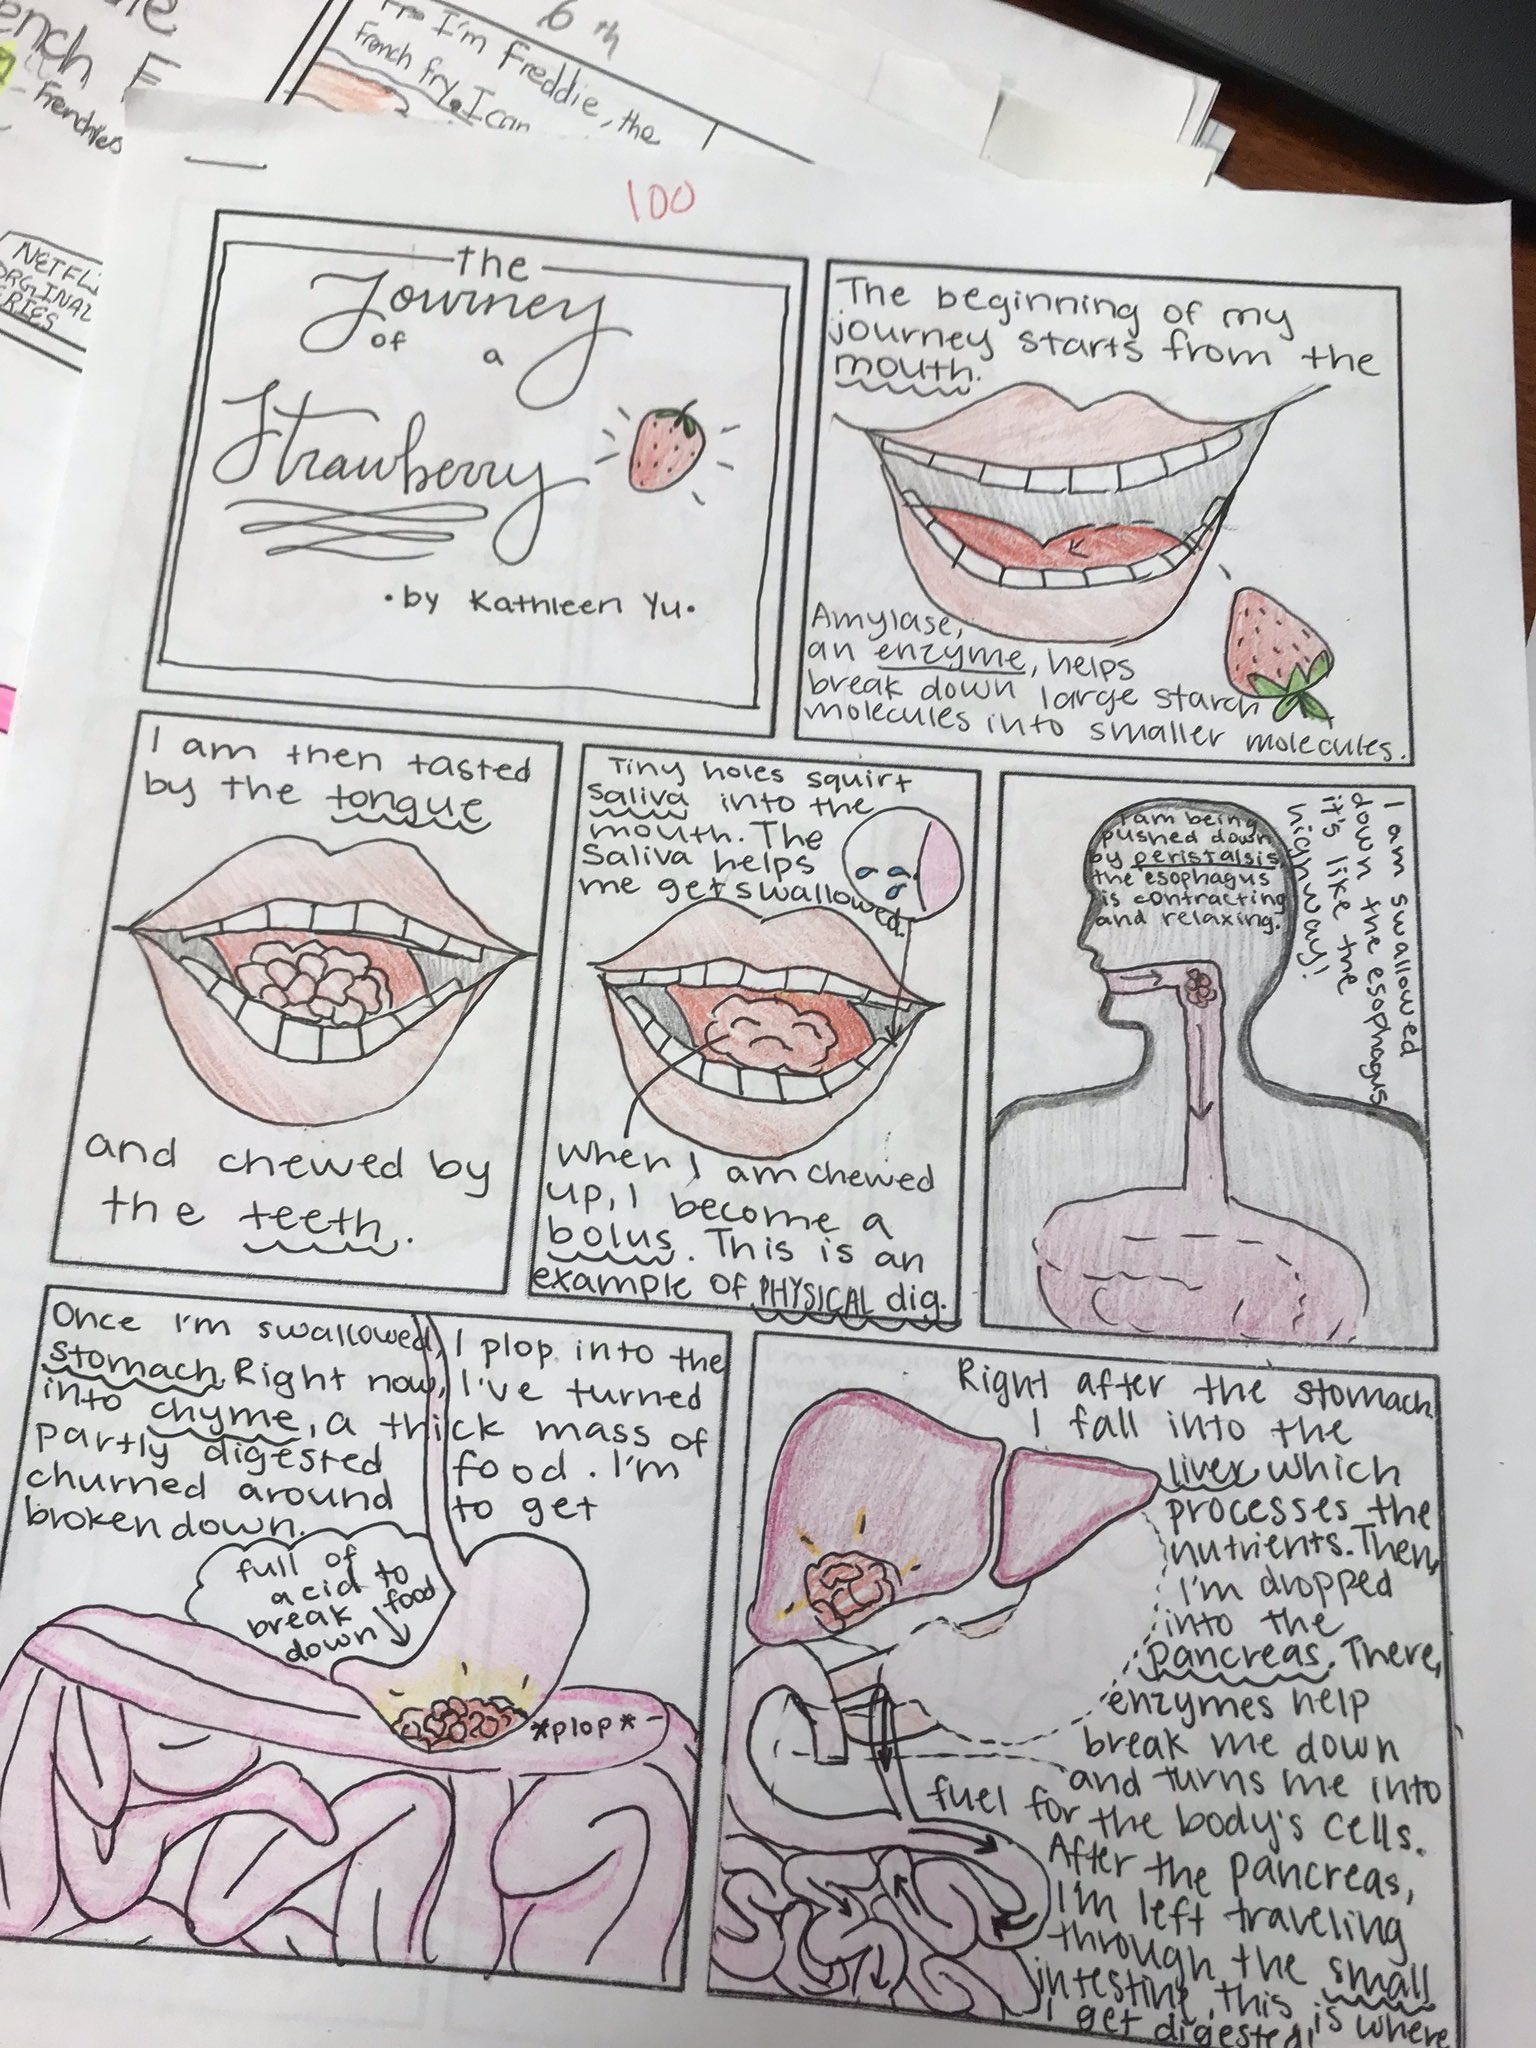 6th
I'm Freddie, the
french fry. I can
ench F
- Frenchies
NETFLi
ORGINAL
ERIES
100
the
Journey
of a
Strawberry
• by Kathleen Yu •
The beginning of my
journey starts from the
mouth.
Amylase,
an enzyme, helps
break down large starch
molecules into smaller molecules.
I am then tasted
by the tongue
and chewed by
the teeth.
Tiny holes squirt
saliva into the
mouth. The
Saliva helps
me get swallowed.
When I am chewed
up, I become a
bolus. This is an
example of PHYSICAL dig.
I am swallowed
down the esophagus
it's like the
highway!
I am being
pushed down
by peristalsis
the esophagus
is contracting
and relaxing.
Once I'm swallowed, I plop into the
stomach. Right now, I've turned
into chyme, a thick mass of
partly digested food. I'm
churned around to get
broken down.
full of
acid to
break food
down
*plop*
Right after the stomach
I fall into the
liver which
processes the
nutrients. Then,
I'm dropped
into the
pancreas. There,
enzymes help
break me down
and turns me into
fuel for the body's cells.
After the pancreas,
I'm left traveling
through the small
intestine, this is where
I get digested!